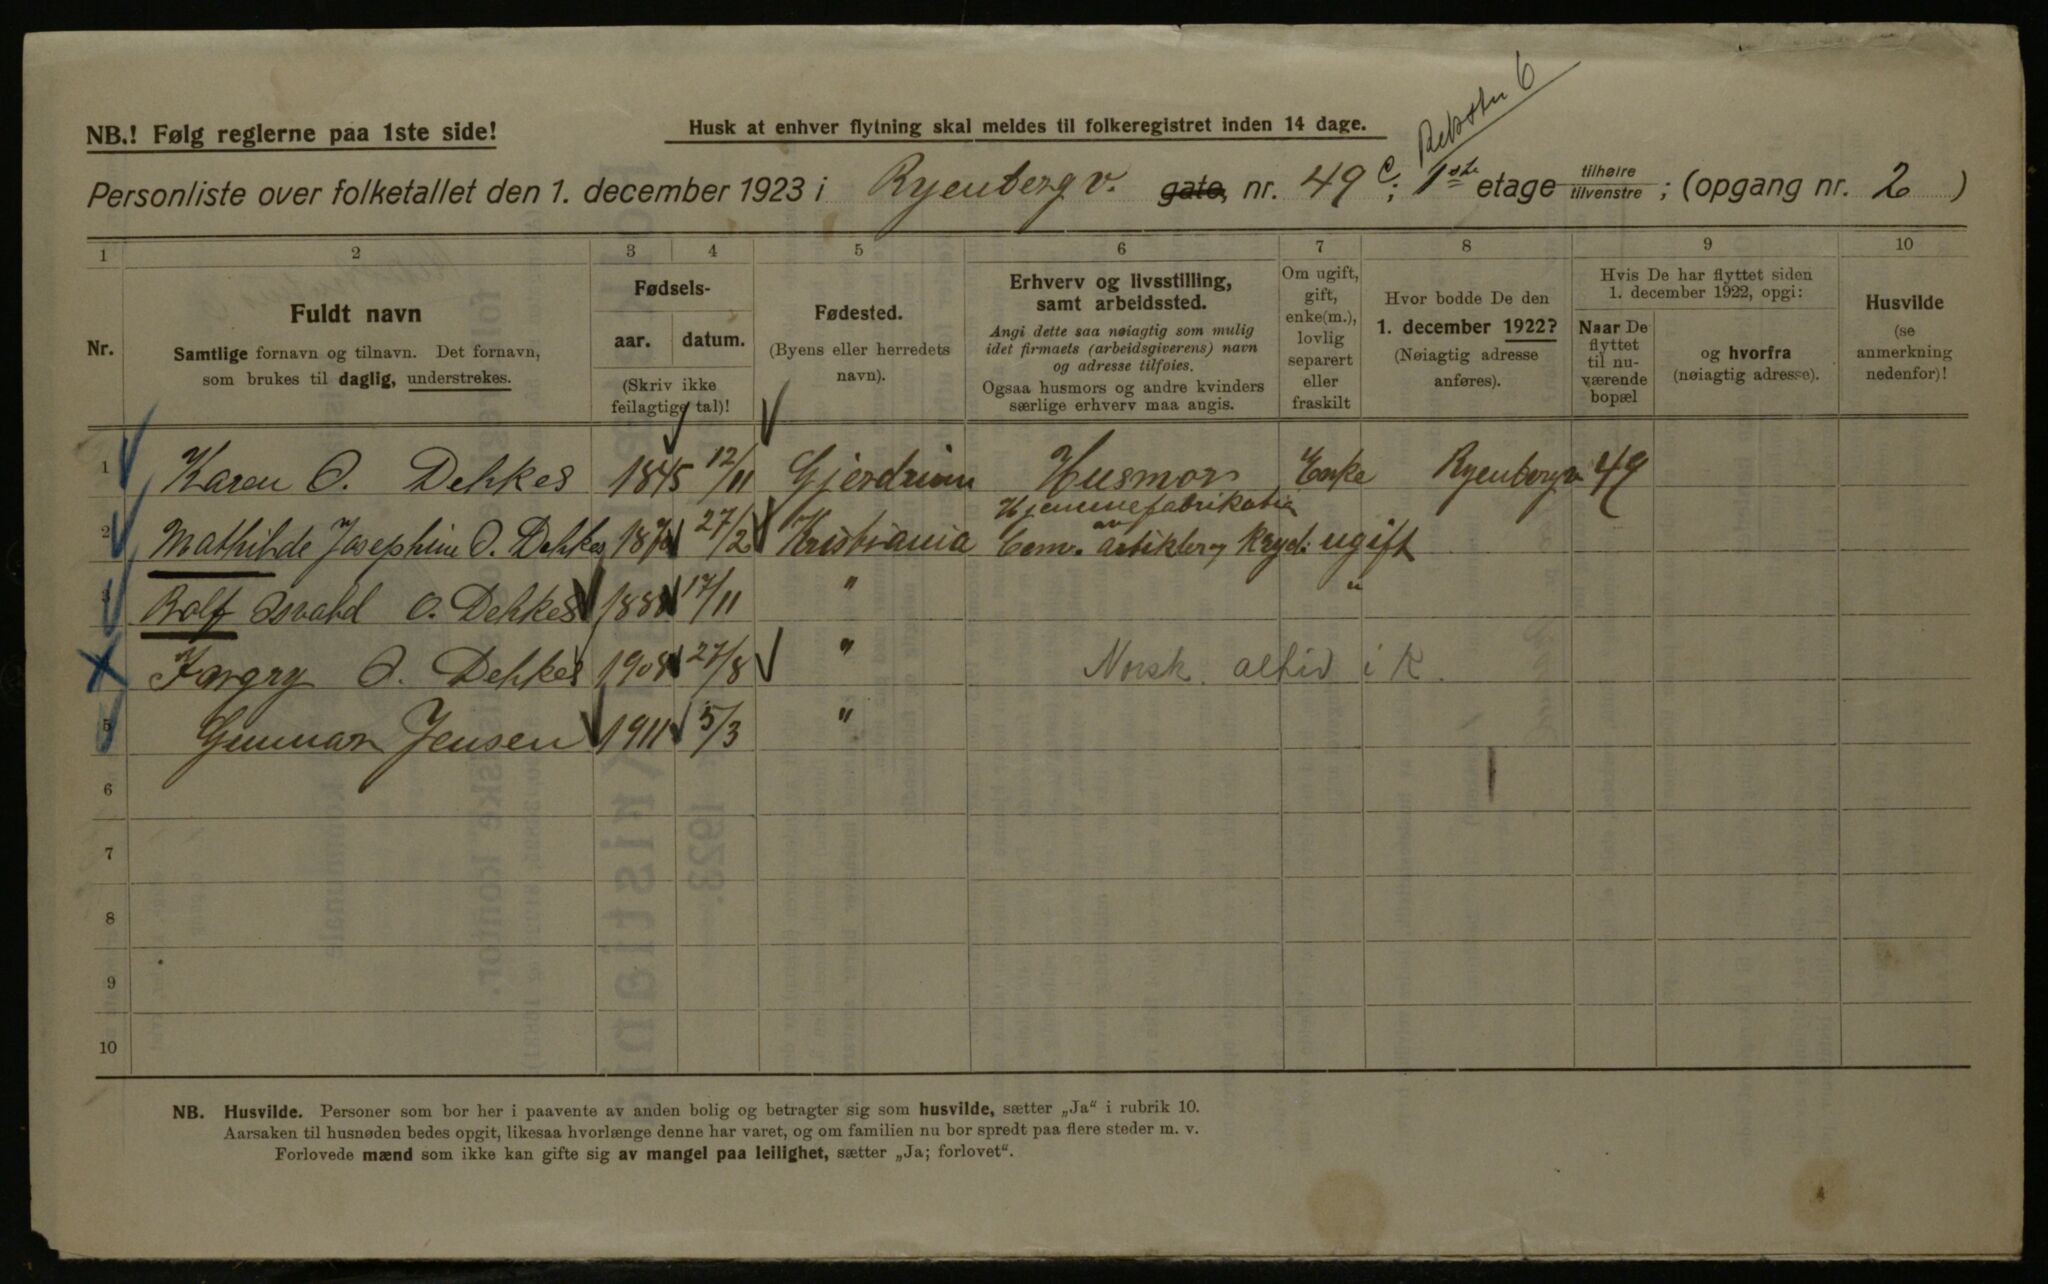 NB.! Følg reglerne paa 1ste side!
Husk at enhver flytning skal meldes til folkeregistret inden 14 dage.
Personliste over folketallet den 1. december 1923 i Ryenbergv. gate, nr. 49 c; 1ste etage tilhøire tilvenstre; (opgang nr. 2)
1 2 3 4 5 6 7 8 9 10
Nr.
Fuldt navn
Samtlige fornavn og tilnavn. Det fornavn,
som brukes til daglig, understrekes.
Fødsels-
aar. datum.
(Skriv ikke
feilagtige tal)!
Fødested.
(Byens eller herredets
navn).
Erhverv og livsstilling,
samt arbeidssted.
Angi dette saa nøiagtig som mulig
idet firmaets (arbeidsgiverens) navn
og adresse tilføies.
Ogsaa husmors og andre kvinders
særlige erhverv maa angis.
Om ugift,
gift,
enke(m.),
lovlig
separert
eller
fraskilt
Hvor bodde De den
1. december 1922?
(Nøiagtig adresse
anføres).
Hvis De har flyttet siden
1. december 1922, opgi:
Naar De
flyttet
til nu-
værende
bopæl
og hvorfra
(nøiagtig adresse).
Husvilde
(se
anmerkning
nedenfor)!
1 Karen O. Dehkes 1845 12/11 Gjerdrum Husmor Enke Ryenbergv 49
Hjemmefabrikation
2 Mathilde Josephine O. Dehkes 27/2 Kristiania av artikler ugift
3 Rolf Osvald O. Dehkes 188 17/11 " "
O. Dehkes 1908 27/8 " Norsk. altid i K.
5 Gunnar Jensen 1911 5/3 "
6
7
8
9
10
NB. Husvilde. Personer som bor her i paavente av anden bolig og betragter sig som husvilde, sætter „Ja“ i rubrik 10.
Aarsaken til husnøden bedes opgit, likesaa hvorlænge denne har varet, og om familien nu bor spredt paa flere steder m. v.
Forlovede mænd som ikke kan gifte sig av mangel paa leilighet, sætter „Ja; forlovet“.